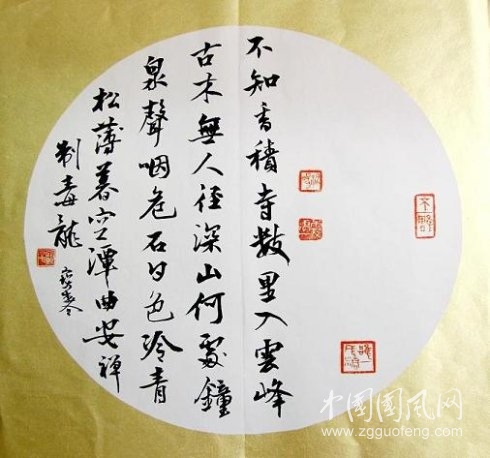 不知香積寺數里入雲峰
古木無人徑深山何處鐘
泉聲咽危石日色冷青
松薄暮空潭曲安禪
制毒龍
中國國風网
www.zgguofeng.com